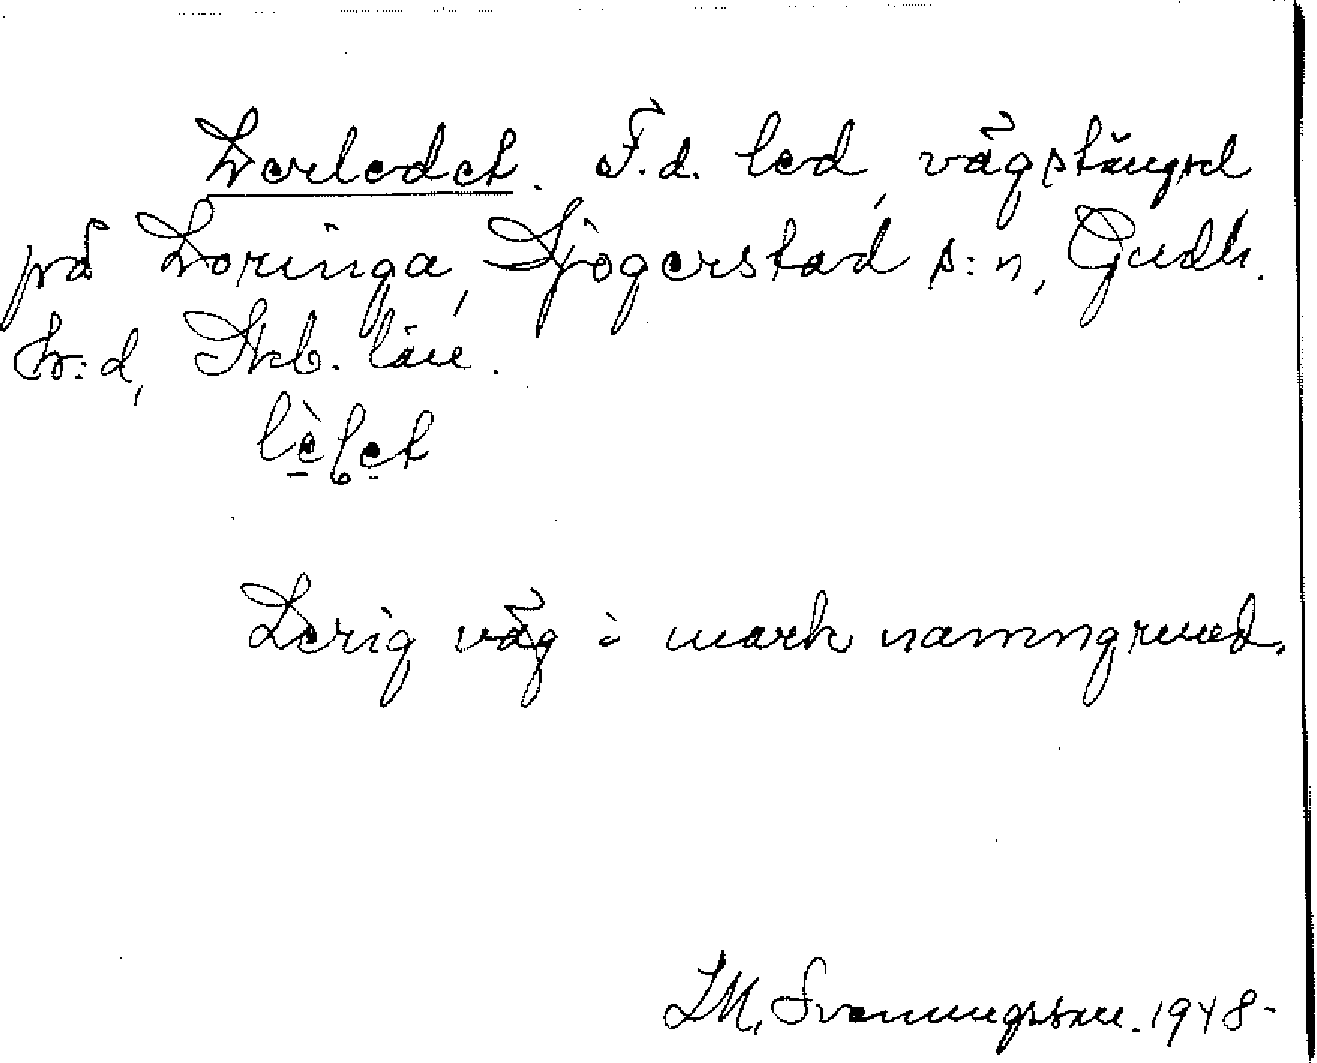 Lerledet. F.d. led, vägstängsel
på Loringa, Sjögerstad s:n, Gudh.
hr:d, Skb. län.
Lerig väg i mark namngrund.
LM. Svenningsson. 1948-